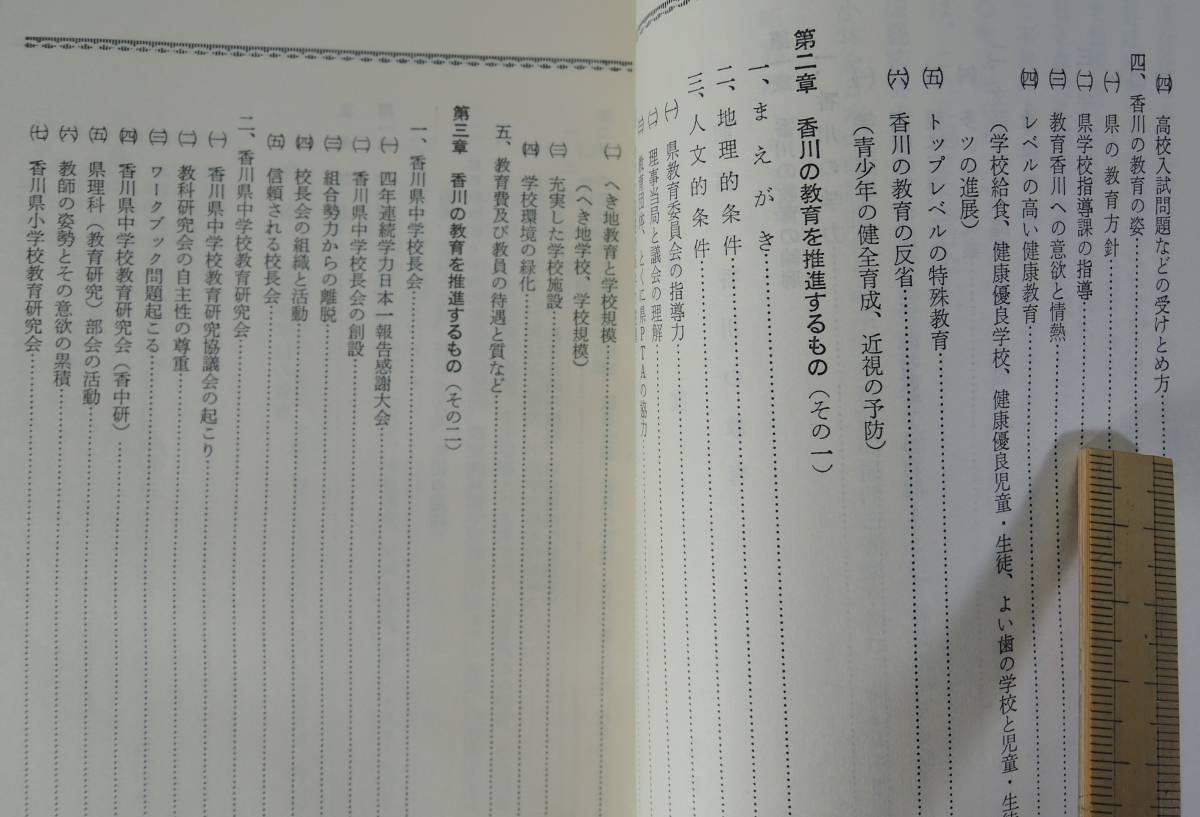 ㈣ 高校入試問題などの受けとめ方
四、香川の教育の姿
㈠ 県の教育方針
㈡ 県学校指導課の指導
㈢ 教育香川への意欲と情熱
㈣ レベルの高い健康教育
（学校給食、健康優良学校、健康優良児童・生徒、よい歯の学校と児童・生徒
ツの進展）
㈤ トップレベルの特殊教育
㈥ 香川の教育の反省
（青少年の健全育成、近視の予防）
第二章 香川の教育を推進するもの（その一）
一、まえがき
二、地理的条件
三、人文的条件
㈠ 県教育委員会の指導力
㈡ 理事当局と議会の理解
㈢ 教育団体、とくに県PTAの協力
㈡ へき地教育と学校規模
（へき地学校、学校規模）
㈢ 充実した学校施設
㈣ 学校環境の緑化
五、教育費及び教員の待遇と質など
第三章 香川の教育を推進するもの（その二）
一、香川県中学校長会
㈠ 四年連続学力日本一報告感謝大会
㈡ 香川県中学校長会の創設
㈢ 組合勢力からの離脱
㈣ 校長会の組織と活動
㈤ 信頼される校長会
二、香川県中学校教育研究会
㈠ 香川県中学校教育研究協議会の起こり
㈡ 教科研究会の自主性の尊重
㈢ ワークブック問題起こる
㈣ 香川県中学校教育研究会（香中研）
㈤ 県理科（教育研究）部会の活動
㈥ 教師の姿勢とその意欲の累積
㈦ 香川県小学校教育研究会